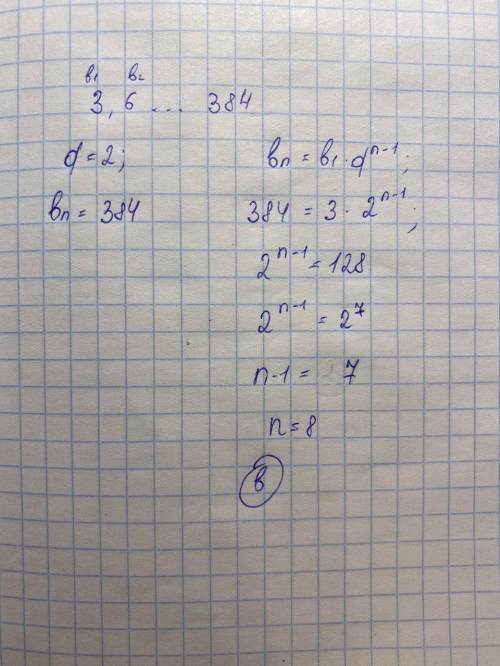 в₁ в₂
3, 6 ... 384
d = 2;
вn = 384
вn = в₁ · dⁿ⁻¹;
384 = 3 · 2ⁿ⁻¹;
2ⁿ⁻¹ = 128
2ⁿ⁻¹ = 2⁷
n-1 = 7
n = 8
в